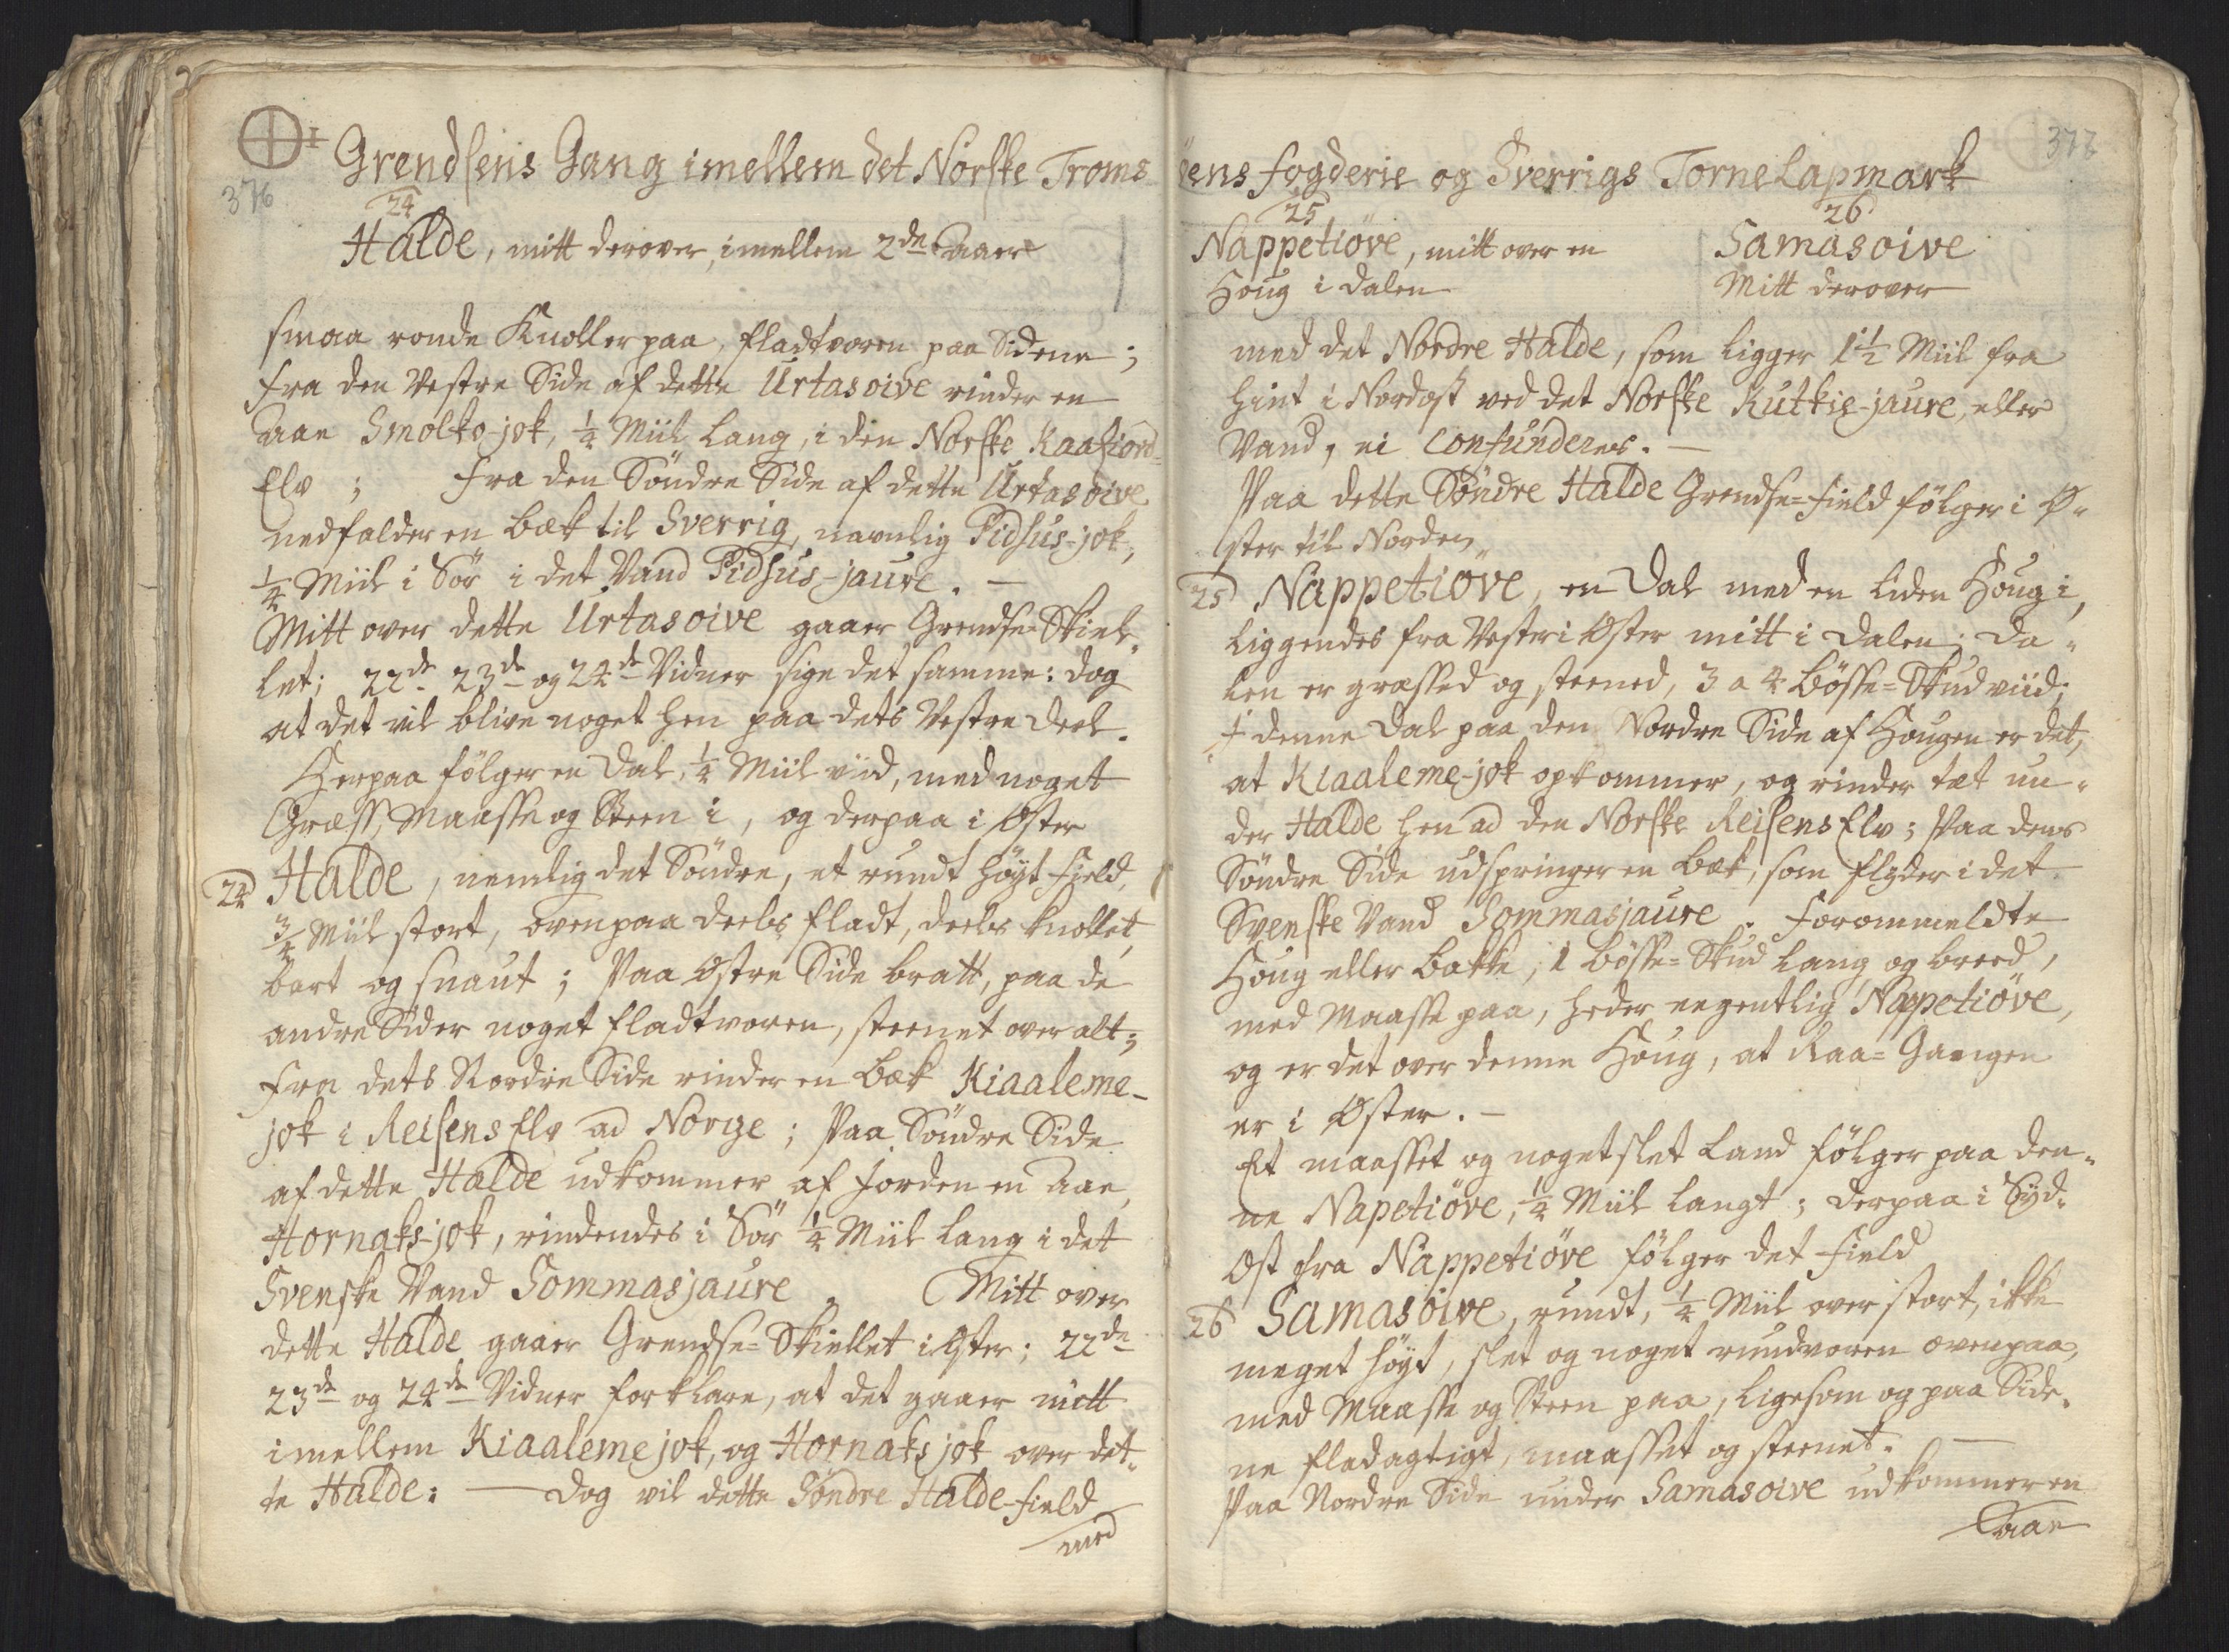 Grendsens Gang imellem det Norske Troms
376
24
Halde, mitt derover, imellem 2de Aaer
smaa ronde Knoller paa, fladtvoren paa Sidene;
fra den Vestre Side af dette Urtasoive rinder en
Aae Smolko-jok, 1/4 Miil lang, i den Norske Kaafiord-
Elv; fra den Söndre Side af dette Urtasoive
nedfalder en bæk til Sverrig, navnlig Pidsus-jok,
1/4 Miil i Sör i det Vand Pidsus-jaure. —
Mitt over dette Urtasoive gaaer Grendse-Skiel-
let; 22de 23de og 24de Vidner sige det samme: dog
at det vil blive noget hen paa dets Vestre deel.
Herpaa fölger en Dal, 1/4 Miil viid, med noget
Græss, Maasse og Steen i, og derpaa i Oster
24 Halde, nemlig det Söndre, et rundt höyt Field,
3/4 Miil stort, ovenpaa deels fladt, deels knollet,
bart og snaut; Paa Ostre Side bratt, paa de
andre Sider noget fladtvoren, steenet over alt;
fra dets Nordre Side rinder en bæk Kiaaleme-
jok i Reisens Elv ad Norge; Paa Söndre Side
af dette Halde udkommer af Jorden en Aae,
Hornaks-jok, rindendes i Sör 1/4 Miil lang i det
Svenske Vand Sommasjaure. Mitt over
dette Halde gaaer Grendse-Skiellet i Oster; 22de
23de og 24de Vidner forklare, at det gaaer mitt
imellem Kiaaleme jok, og Hornaks jok over det-
te Halde: — Dog vil dette Söndre Halde-field
med
öens fogderie og Sverrigs Torne Lapmark
377
25
26
Nappetiöve, mitt over en
Houg i Dalen
Samasoive
Mitt derover
med det Nordre Halde, som ligger 1 1/2 Miil fra
hint i Nordost ved det Norske Kutkie-jaure, eller
Vand, ei confunderes. —
Paa dette Söndre Halde Grendse-field fölger i O-
ster til Norden
25 Nappetiöve, en Dal med en liden Houg i,
liggendes fra Vester i Oster mitt i Dalen; Da-
len er græssed og steened, 3 a 4 bösse-Skud viid;
I denne Dal paa den Nordre Side af Hougen er det,
at Kiaaleme-jok opkommer, og rinder tæt un-
der Halde hen ad den Norske Reisens Elv; Paa dens
Söndre Side udspringer en bæk, som flyder i det
Svenske Vand Sommasjaure. Forommeldte
Houg eller bakke, 1 bösse-Skud lang og breed,
med Maasse paa, heder eegentlig Nappetiöve,
og er det over denne Houg, at Raa-Gangen
er i Oster. —
Et maasset og noget slet Land fölger paa den-
ne Napetiöve, 1/4 Miil langt; derpaa i Syd-
Ost fra Nappetiöve fölger det Field
26 Samasoive, rundt, 1/4 Miil over stort, ikke
meget höyt, slet og noget rundvoren ovenpaa,
med Maasse og Steen paa, ligesom og paa Side-
ne fladagtigt, maasset og steenet. —
Paa Nordre Side under Samasoive udkommer en
Aae